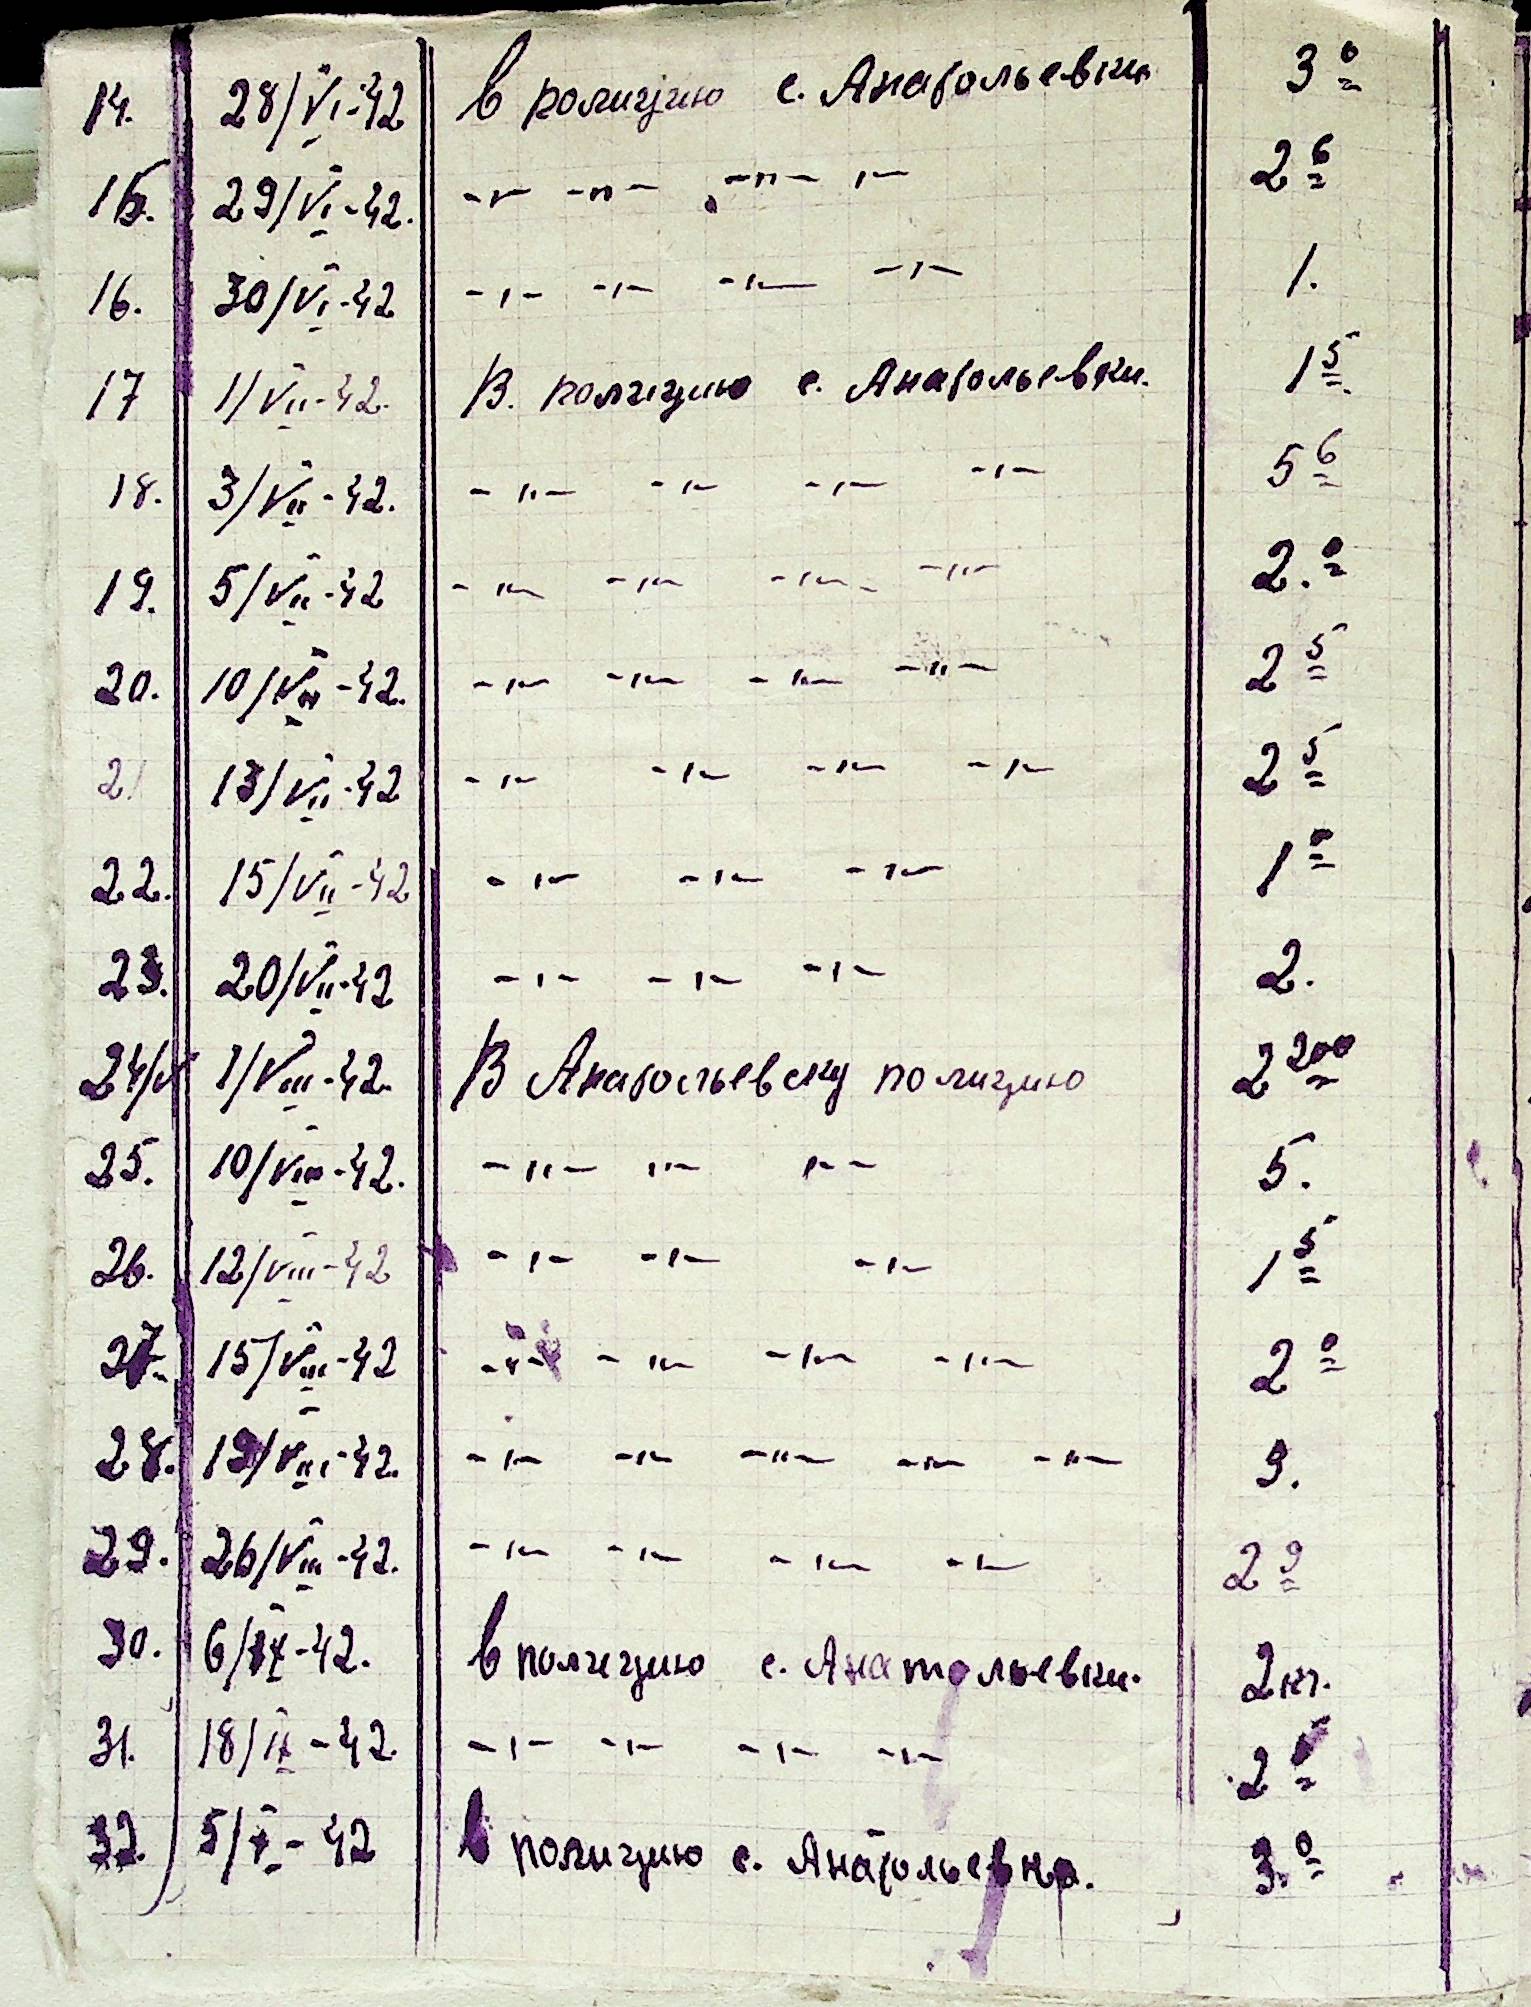 14. 28/VI-42 в полицию с. Анатольевки 3 0
15. 29/VI-42. -"- -"- -"- -"- 2 6
16. 30/VI-42 -"- -"- -"- -"- 1.
17 1/VII-42. В. полицию с. Анатольевки. 1 5.
18. 3/VII-42. -"- -"- -"- -"- 5 6
19. 5/VII-42 -"- -"- -"- -"- 2. 0
20. 10/VII-42. -"- -"- -"- -"- 2 5
21 13/VII-42 -"- -"- -"- -"- 2 5
22. 15/VII-42 -"- -"- -"- 1
23. 20/VII-42 -"- -"- -"- 2.
24/ 1/VIII-42. В Анатольевску полицию 2 200
25. 10/VIII-42. -"- -"- -"- 5.
26. 12/VIII-42 -"- -"- -"- 1 5
27. 15/VIII-42 -"- -"- -"- -"- 2 0
28. 19/VIII-42. -"- -"- -"- -"- -"- 3.
29. 26/VIII-42. -"- -"- -"- -"- 2 9
30. 6/IX-42. в полицию с. Анатольевки. 2 кг.
31. 18/IX-42. -"- -"- -"- -"- 2
32. 5/X-42 в полицию с. Анатольевка. 3. 0